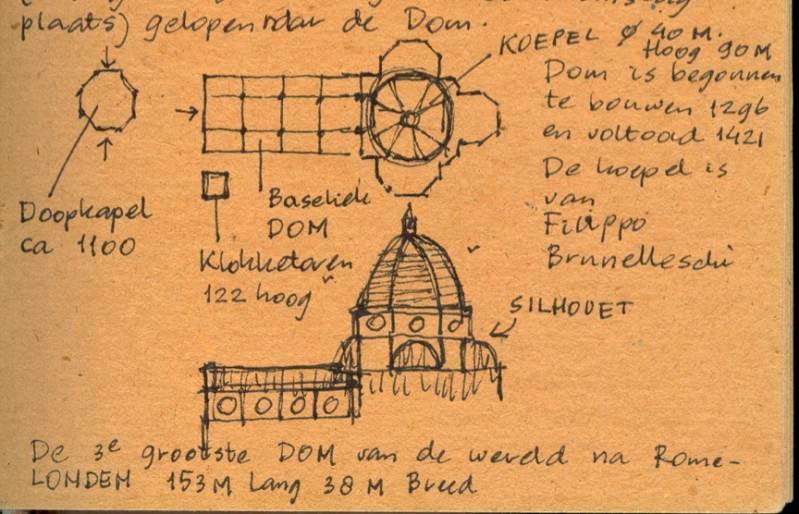 plaats) gelopen naar de Dom.
KOEPEL ø 40 M.
Hoog 90 M
Dom is begonnen
te bouwen 1296
en voltooid 1421
De koepel is
van
Filippo
Brunelleschi
Doopkapel
ca 1100
Baseliek
DOM
Klokketoren
122 hoog
SILHOUET
De 3e grootste DOM van de wereld na Rome-
LONDEN 153 M Lang 38 M Breed